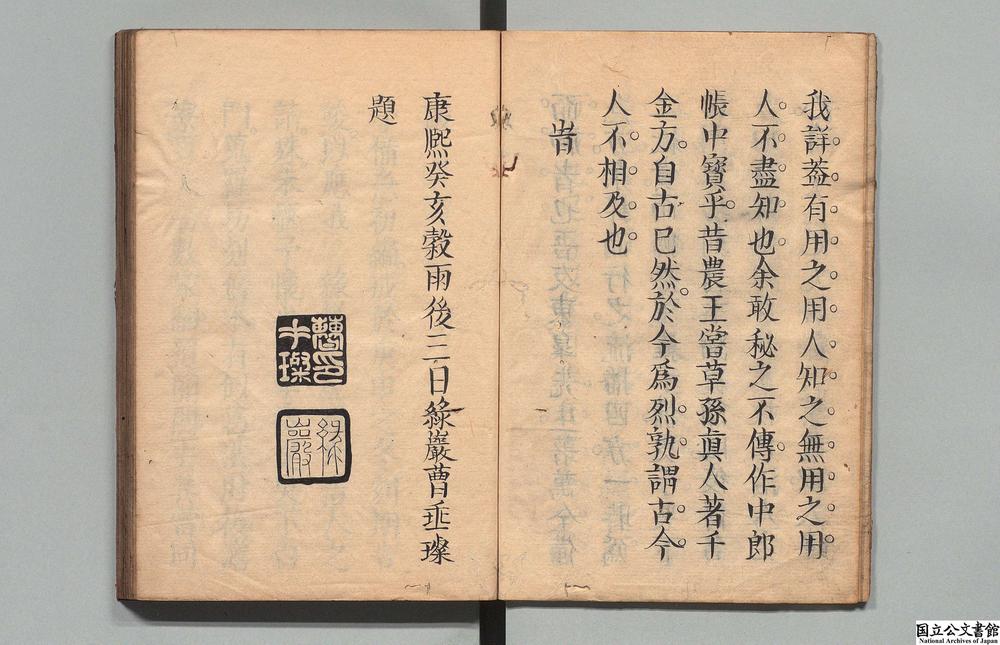 我詳葢有用之用人知之無用之用
人不盡知也余敢秘之不傳作中郎
帳中寶乎昔農王嘗草孫眞人著千
金方自古巳然於今爲烈孰謂古今
人不相及也
旹
康熈癸亥穀雨後三日綠巖曹垂璨
題
曹印垂璨
綠巖
国立公文書館
National Archives of Japan